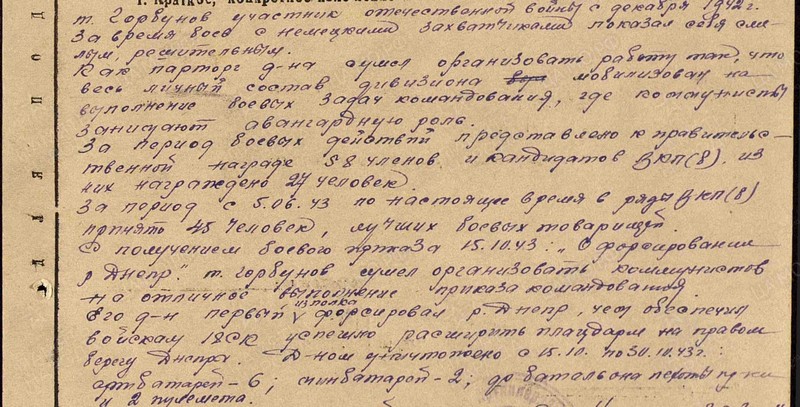 1. Краткое, конкретное
т. Горбунов участник отечественной войны с декабря 1942г.
За время боев с немецкими захватчиками показал себя сме-
лым, решительным.
Как парторг д-на сумел организовать работу так, что
весь личный состав дивизиона мобилизован на
выполнение боевых задач командования, где коммунисты
занимают авангардную роль.
За период боевых действий представлено к правительс-
твенной награде 58 членов и кандидатов ВКП(б), из
них награждено 27 человек.
За период с 5.06.43 по настоящее время в ряды ВКП(б)
принято 45 человек, лучших боевых товарищей.
С получением боевого приказа 15.10.43: „О форсировании
р. Днепр." т. Горбунов сумел организовать коммунистов
на отличное выполнение приказа командования.
Его д-н первый из полка форсировал р. Днепр, чем обеспечил
войскам 18СК успешно расширить плацдарм на правом
берегу Днепра. Д-ном уничтожено с 15.10. по 30.10.43г.:
артбатарей-6; минбатарей-2; до батальона пехоты пр-ка
и 2 пулемета.
ДЛЯ ПОД